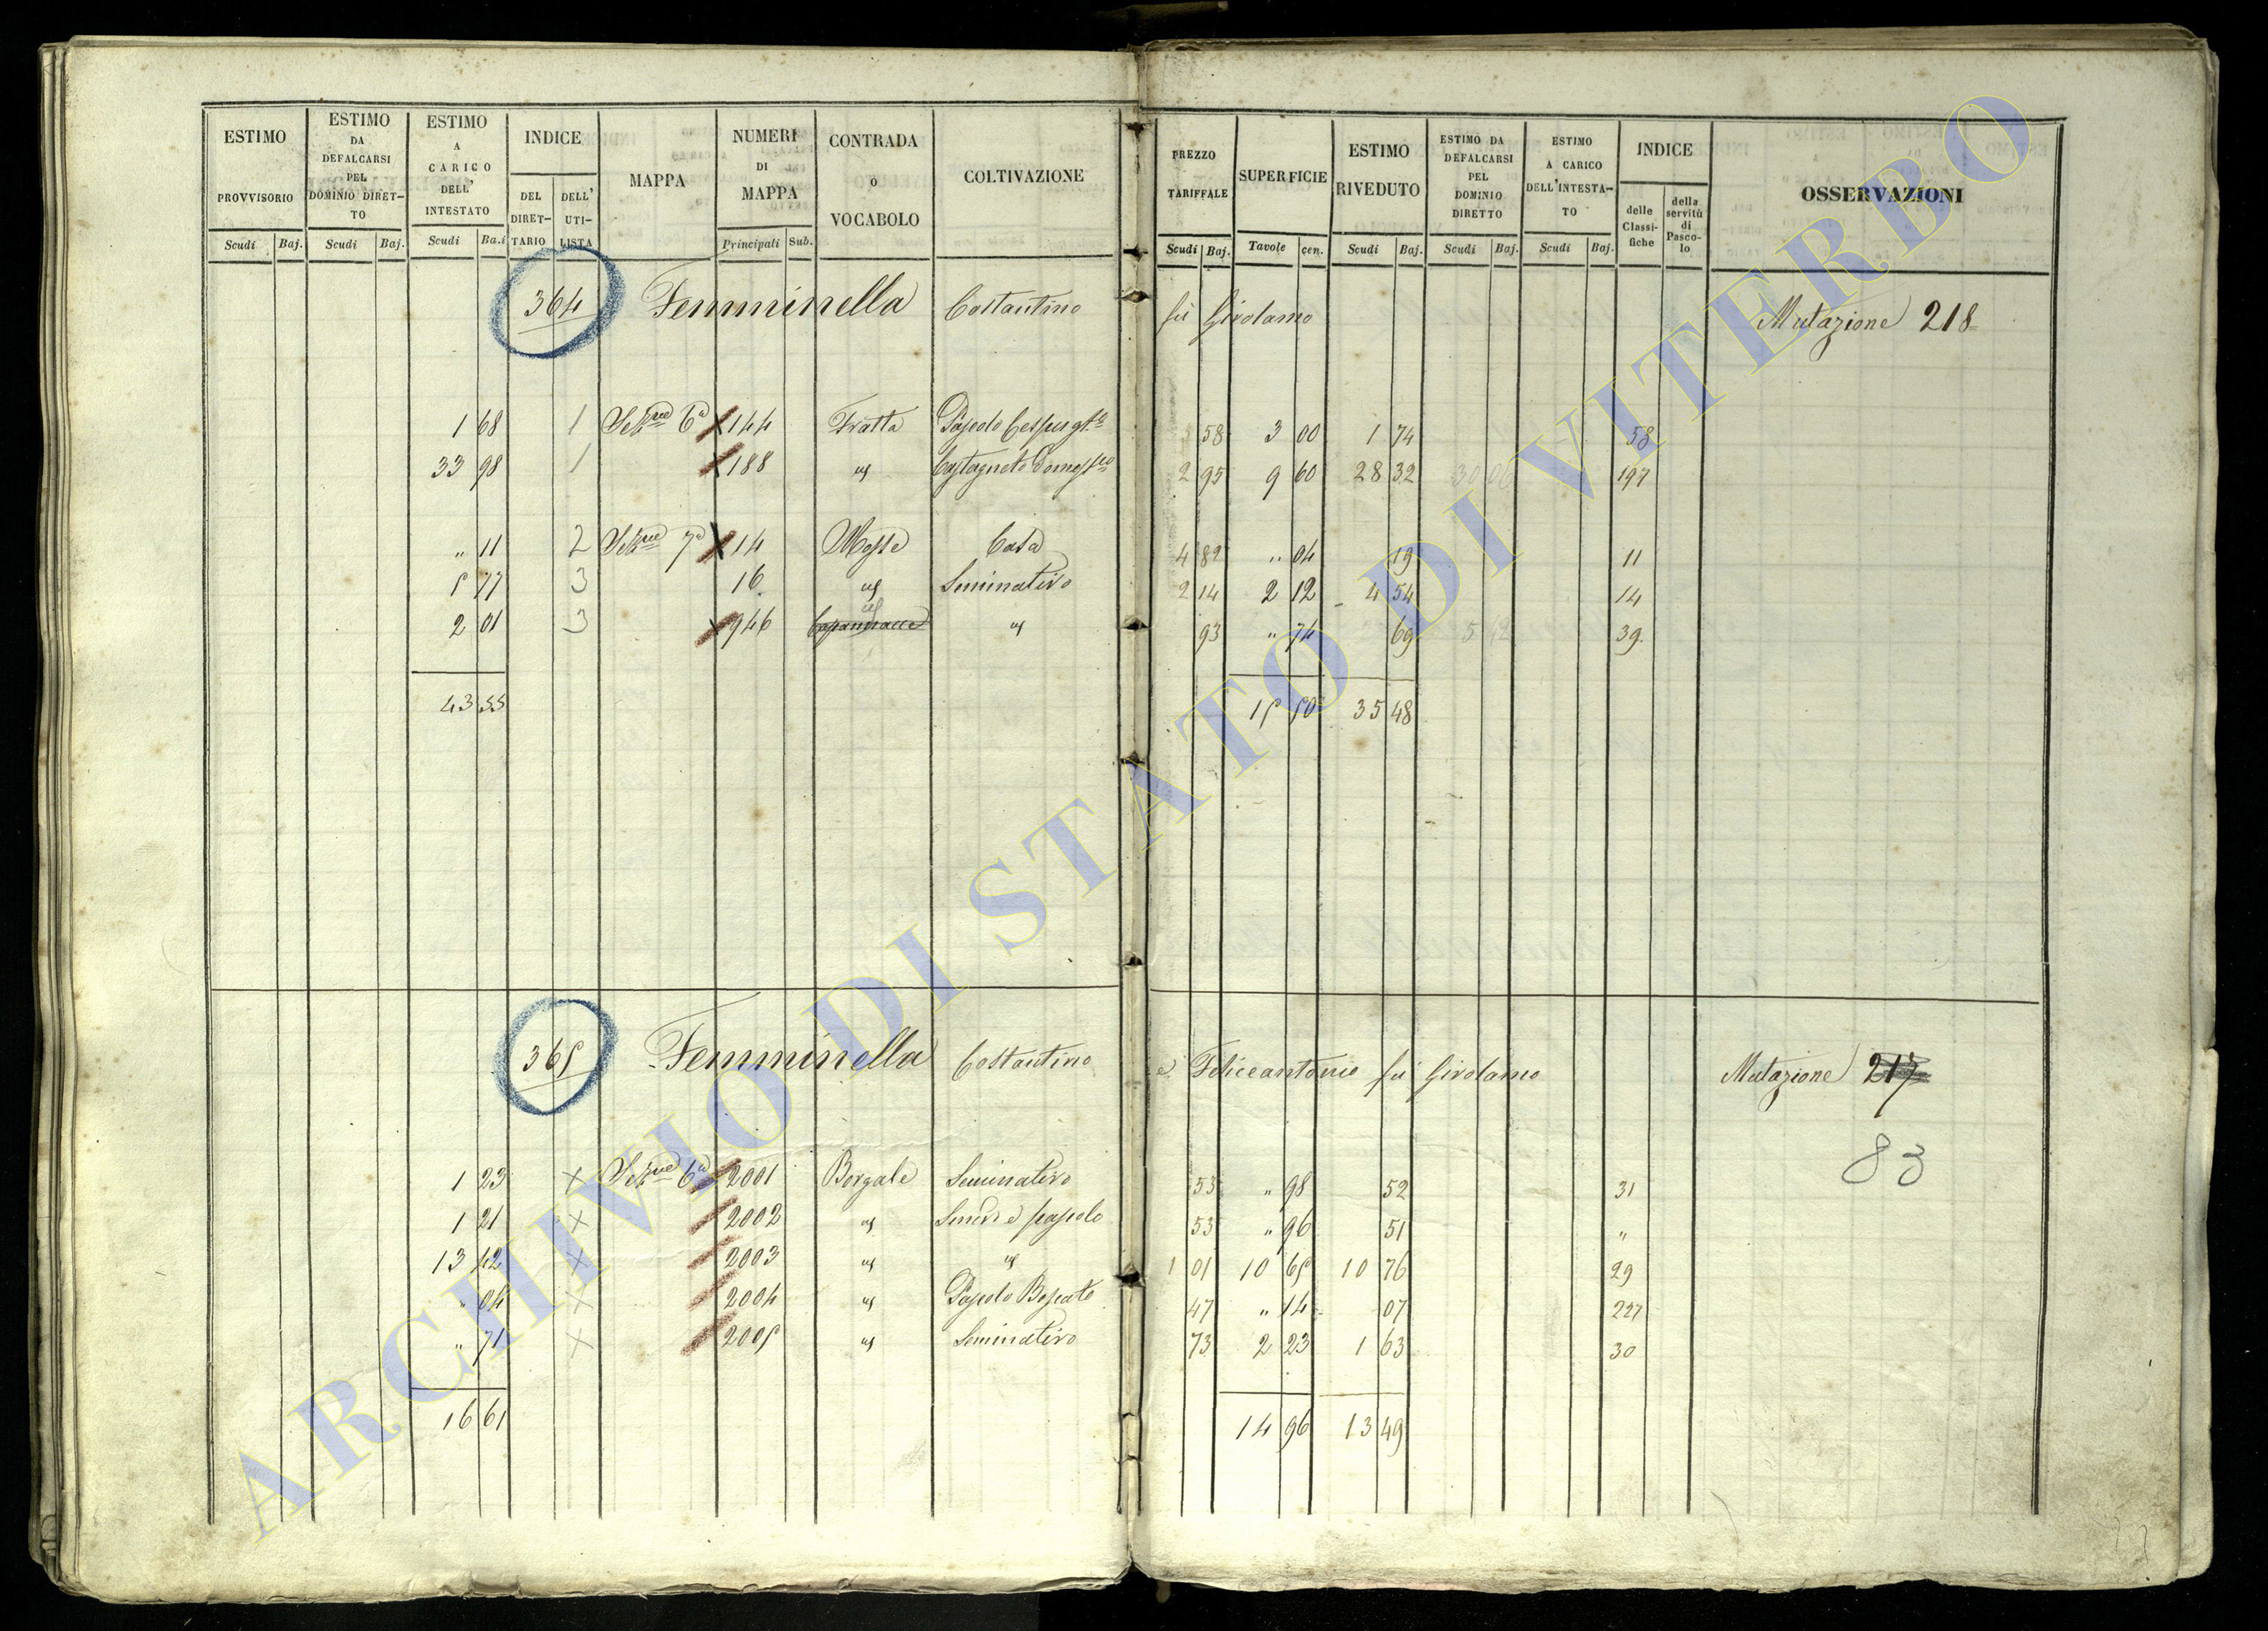 ESTIMO PROVVISORIO Scudi Baj.
ESTIMO DA DEFALCARSI PEL DOMINIO DIRET-TO Scudi Baj.
ESTIMO A CARICO DELL' INTESTATO Scudi Ba.i
INDICE DEL DIRET-TARIO DELL' UTI-LISTA
MAPPA
NUMERI DI MAPPA Principali Sub.
CONTRADA O VOCABOLO
COLTIVAZIONE
PREZZO TARIFFALE Scudi Baj.
SUPERFICIE Tavole cen.
ESTIMO RIVEDUTO Scudi Baj.
ESTIMO DA DEFALCARSI PEL DOMINIO DIRETTO Scudi Baj.
ESTIMO A CARICO DELL'INTESTA-TO Scudi Baj.
INDICE delle Classi-fiche della servitù di Pasco-lo
OSSERVAZIONI
364 Femminella Costantino fu Girolamo Mutazione 218
1 68 1 Sezne 6a 144 Fratta Pascolo Cespugto 58 3 00 1 74 58
33 98 1 188 id Castagneto domesco 2 95 9 60 28 32 30 06 197
" 11 2 Sezne 7a 14 Mosse Casa 4 82 " 04 19 11
5 77 3 16 id Seminativo 2 14 2 12 4 54 14
2 01 3 946 id " 93 " 74 69 39
43 55 15 50 35 48
365 Femminella Costantino e Feliceantonio fu Girolamo Mutazione 217
83
1 23 x Sezne 6a 2001 Borgale Seminativo 53 " 98 52 31
1 21 x 2002 id Semvo e pascolo 53 " 96 51 "
13 42 x 2003 id id 1 01 10 65 10 76 29
" 04 x 2004 id Pascolo Boscato 47 " 14 07 227
" 71 x 2005 id Seminativo 73 2 23 1 63 30
16 61 14 96 13 49
ARCHIVIO DI STATO DI VITERBO